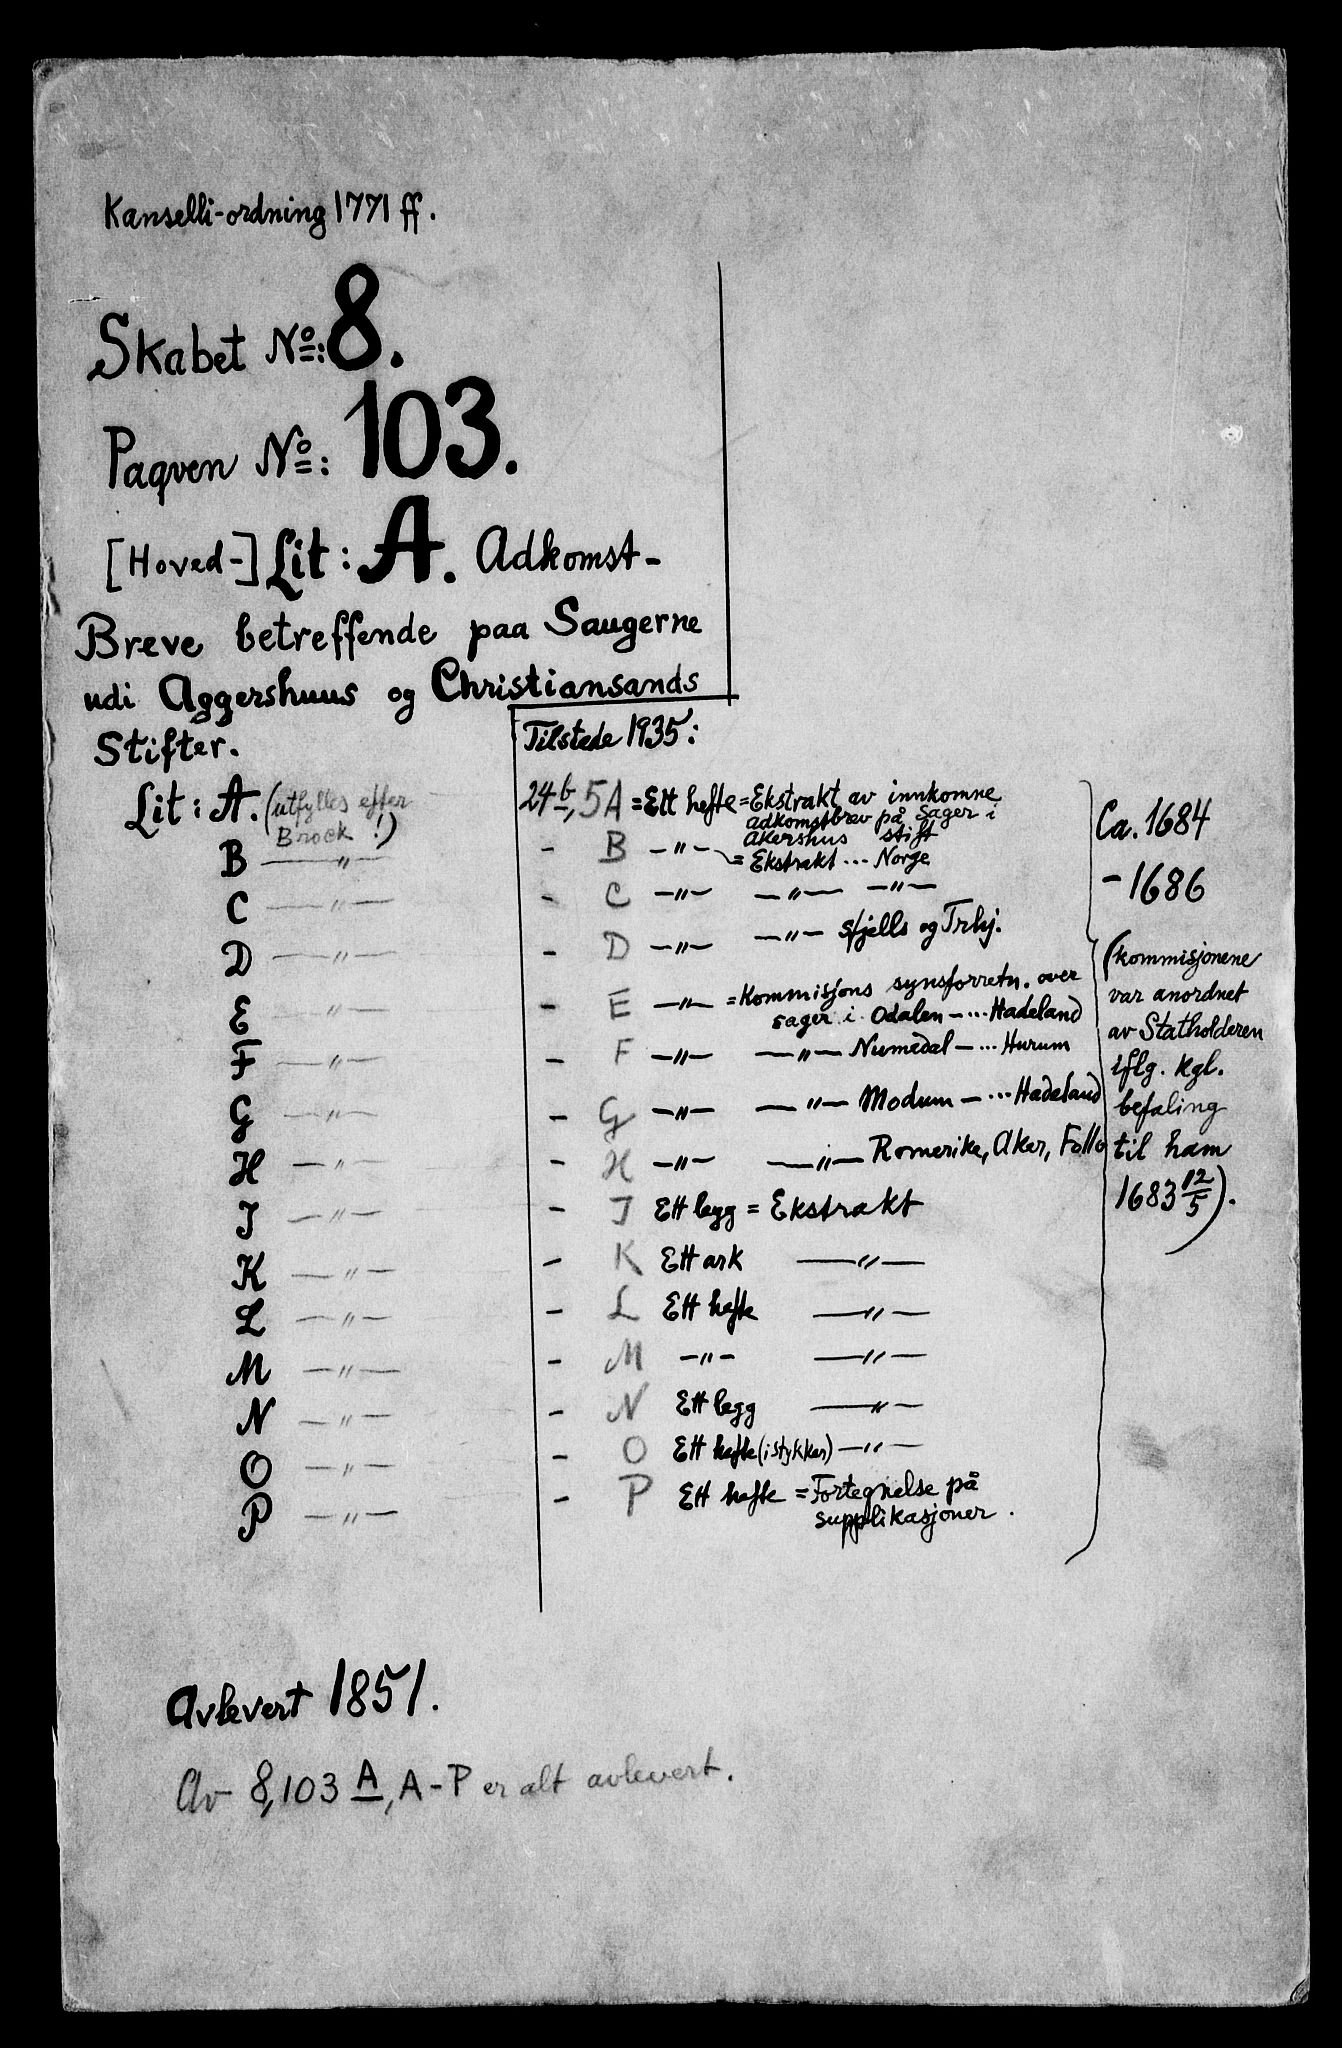 Kanselli-ordning 1771 ff.
Skabet No: 8.
Paqven No: 103.
[Hoved-] Lit: A. Adkomst-
Breve betreffende paa Saugerne
udi Aggershuus og Christiansands
Stifter.
Lit: A. (utfylles efter
Brock!)
B —〃—
C —〃—
D —〃—
E —〃—
F —〃—
G —〃—
H —〃—
I —〃—
K —〃—
L —〃—
M —〃—
N —〃—
O —〃—
P —〃—
Tilstede 1935:
24b, 5A = Ett hefte = Ekstrakt av innkomne
adkomstbrev på Sager i
Akershus stift
- B —〃— = Ekstrakt ... Norge
- C —〃— —〃— —〃—
- D —〃— —〃— sfjells og Trhj.
- E —〃— = Kommisjons synsforretn. over
sager i Odalen - ... Hadeland
- F —〃— —〃— Numedal - ... Hurum
- G —〃— —〃— Modum - ... Hadeland
- H —〃— —〃— Romerike, Aker, Follo
- I Ett legg = Ekstrakt
- K Ett ark —〃—
- L Ett hefte —〃—
- M —〃— —〃—
- N Ett legg —〃—
- O Ett hefte (i stykker) —〃—
- P Ett hefte = Fortegnelse på
supplikasjoner.
Ca. 1684
- 1686
(kommisjonene
var anordnet
av Statholderen
iflg. kgl.
befaling
til ham
1683 12/5).
Avlevert 1851.
Av 8,103 A, A-P er alt avlevert.